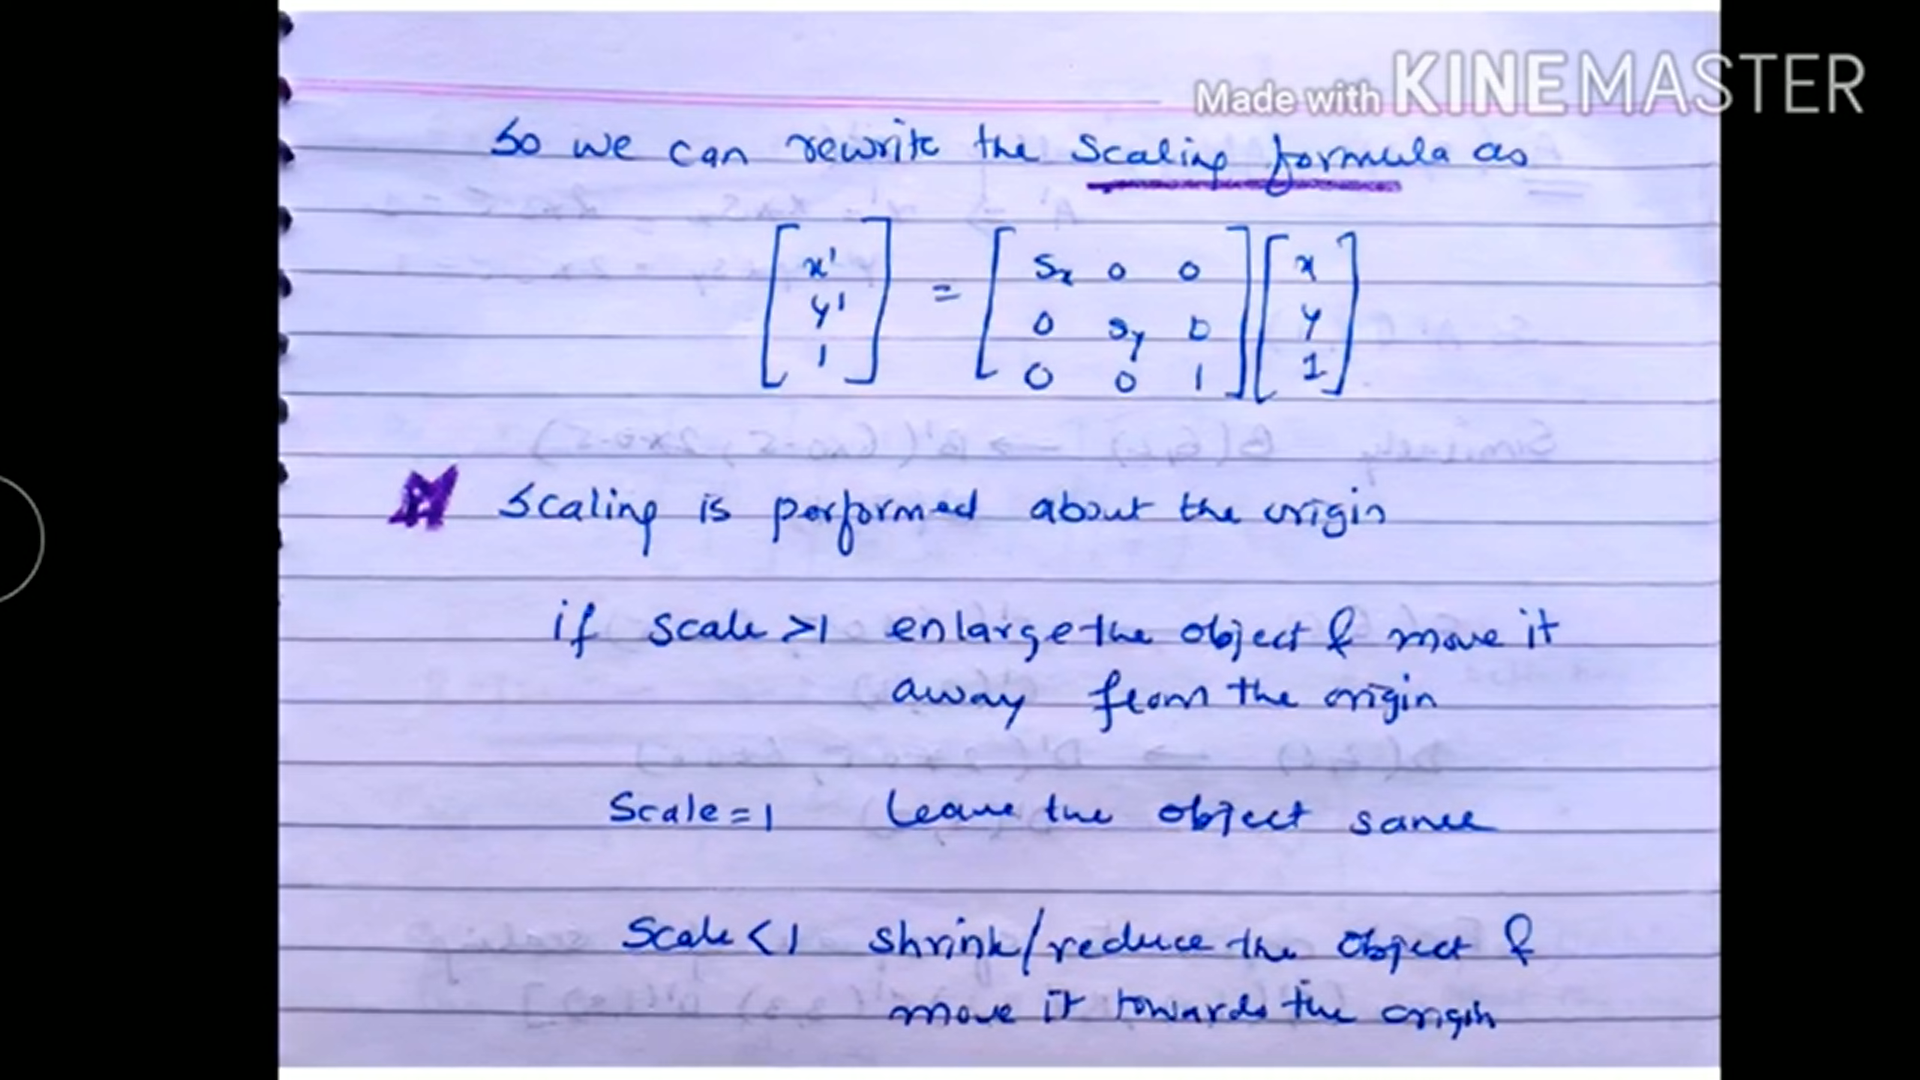 Made with KINEMASTER
So we can rewrite the scaling formula as
[x' y' 1] = [Sx 0 0 0 Sy 0 0 0 1] [x y 1]
Scaling is performed about the origin
if scale >1 enlarge the object & move it
away from the origin
Scale = 1 leave the object same
Scale < 1 shrink/reduce the object &
move it towards the origin